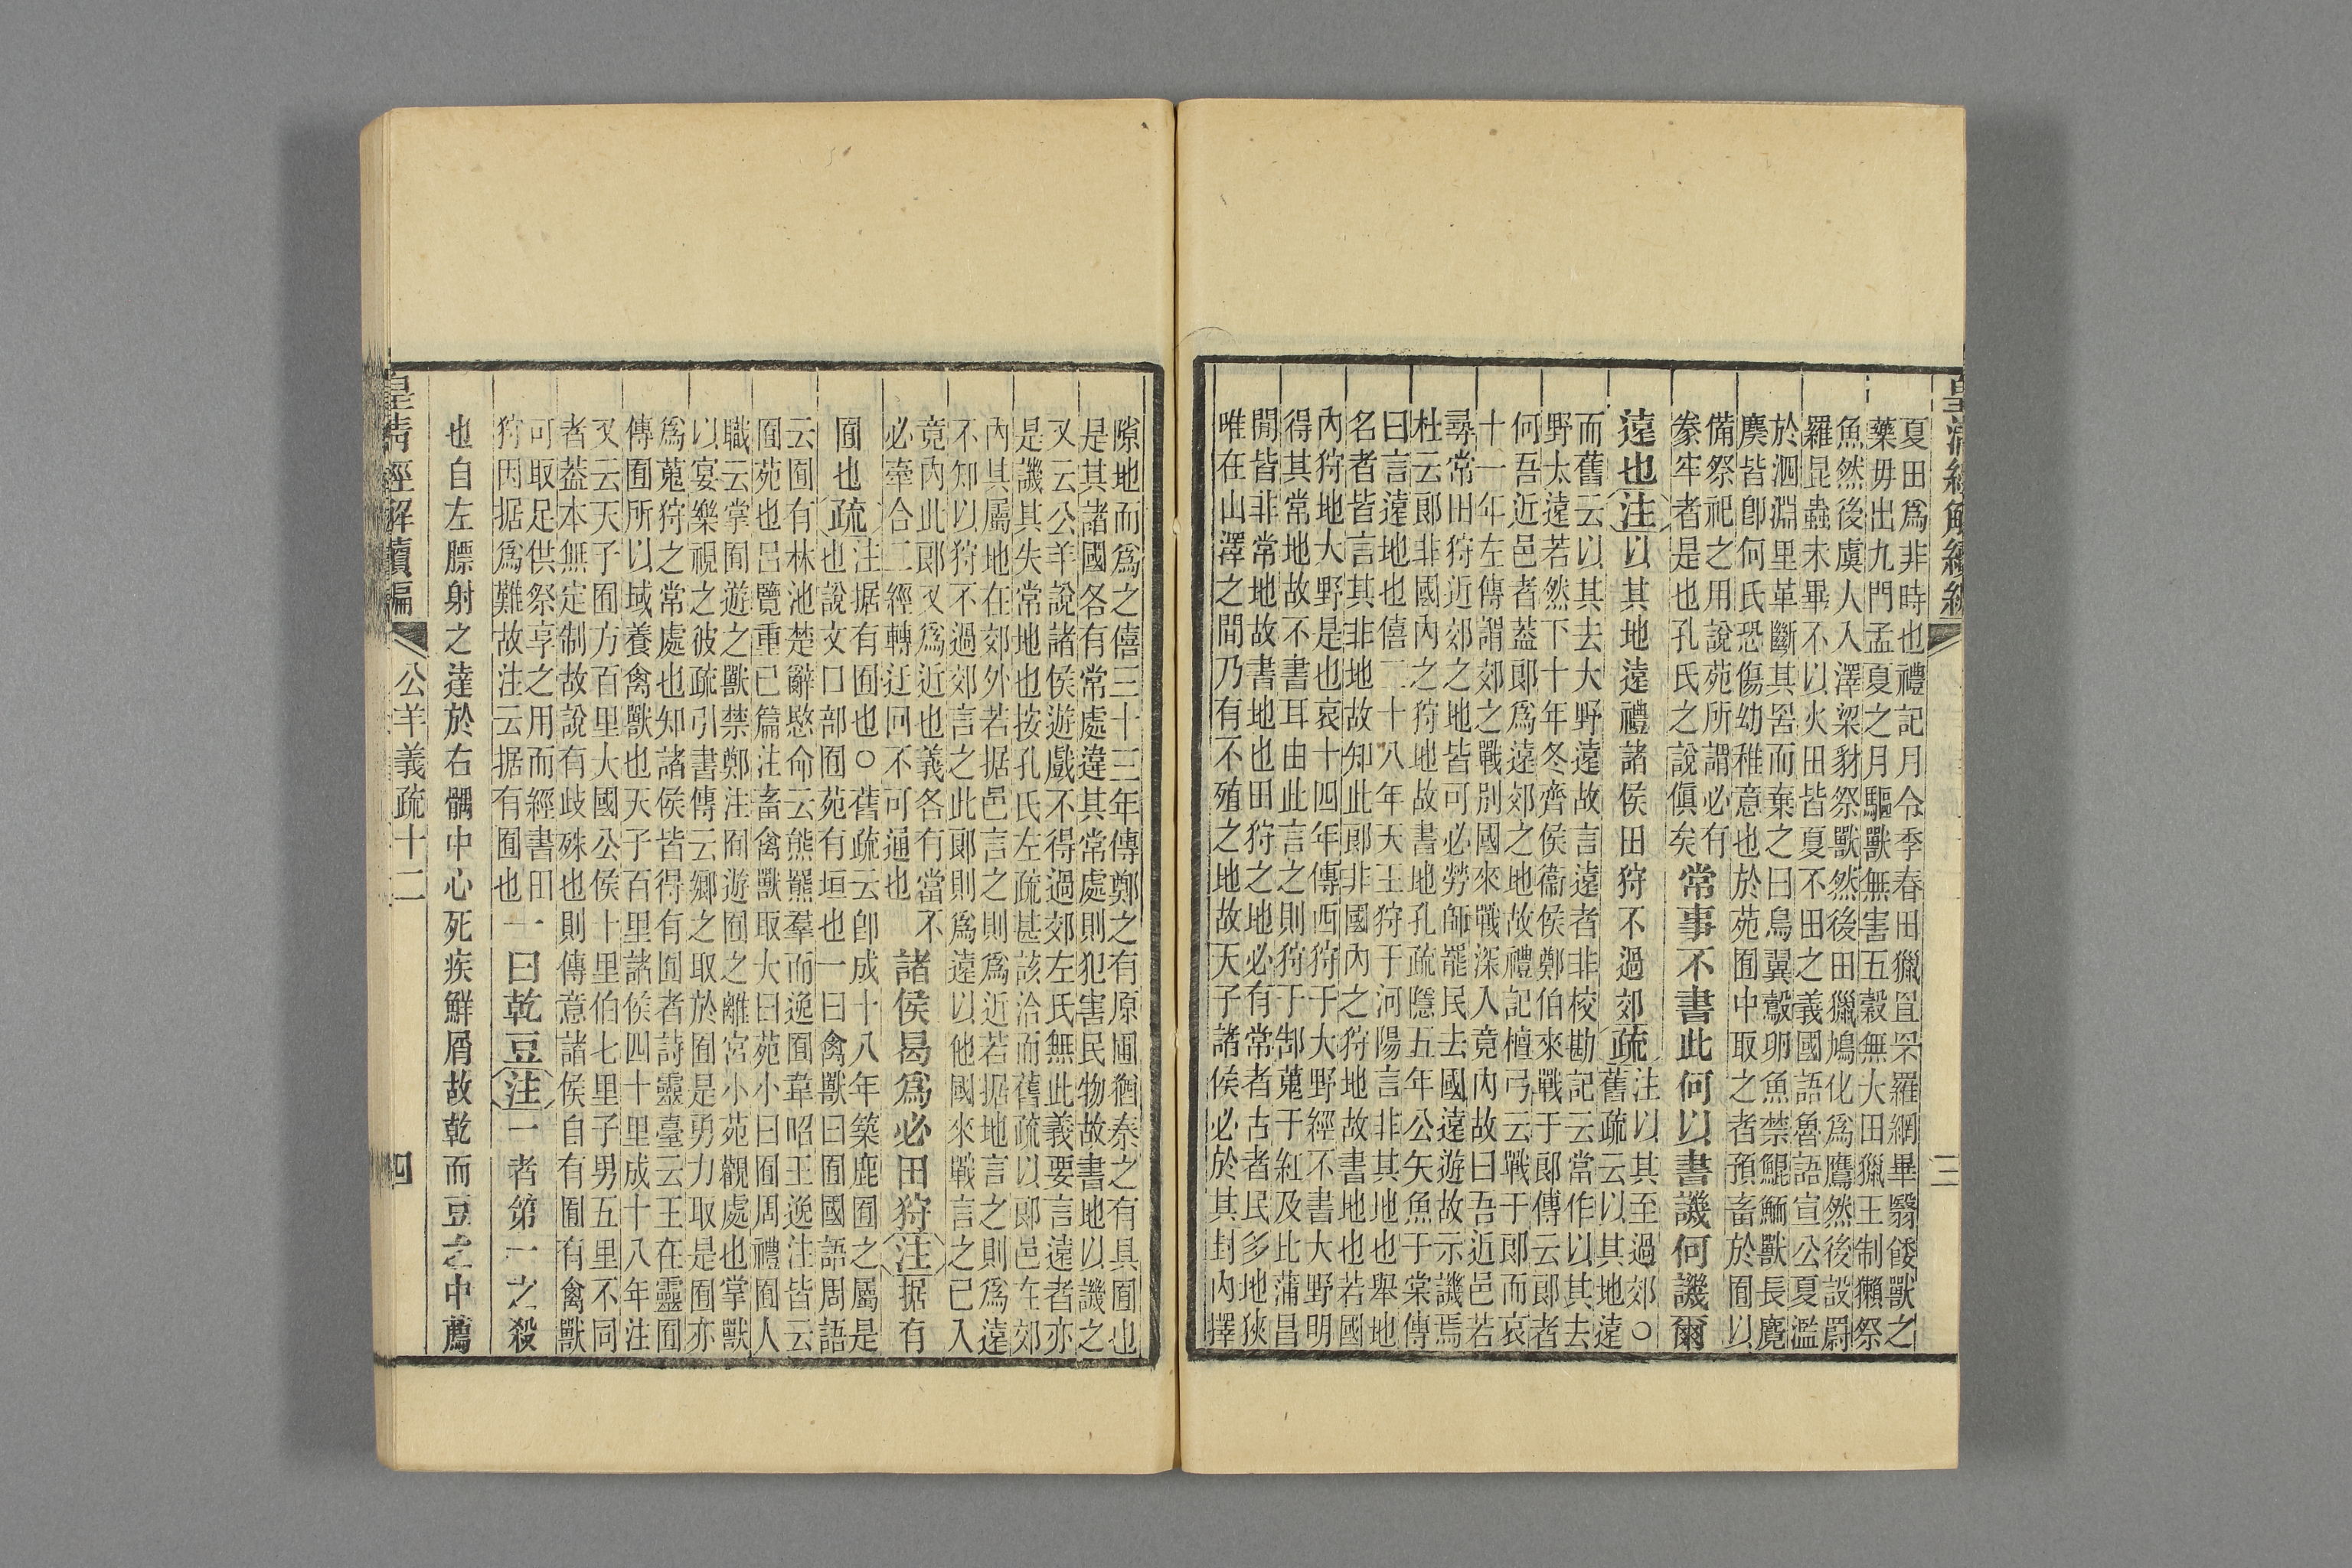 皇清經解續編 三
夏田爲非時也禮記月令季春田獵罝罘羅網畢翳餧獸之
藥毋出九門孟夏之月驅獸無害五穀無大田獵王制獺祭
魚然後虞人入澤梁豺祭獸然後田獵鳩化爲鷹然後設罻
羅昆蟲未畢不以火田皆夏不田之義國語魯語宣公夏濫
於泗淵里革斷其罟而棄之曰鳥翼鷇卵魚禁鯤鮞獸長麑
麌皆卽何氏恐傷幼稚意也於苑囿中取之者預畜於囿以
備祭祀之用說苑所謂必有
豢牢者是也孔氏之說傎矣
常事不書此何以書譏何譏爾
遠也注以其地遠禮諸侯田狩不過郊疏
注以其至過郊○
舊疏云以其地遠
而舊云以其去大野遠故言遠者非校勘記云當作以其去
野太遠若然下十年冬齊侯衞侯鄭伯來戰于郎傳云郎者
何吾近邑者蓋郎爲遠郊之地故禮記檀弓云戰于郎而哀
十一年左傳謂郊之戰別國來戰深入竟內故曰吾近邑若
尋常田狩近郊之地皆可必勞師罷民去國遠遊故示譏焉
杜云郎非國內之狩地故書地孔疏隱五年公矢魚于棠傳
曰言遠地也僖二十八年天王狩于河陽言非其地也舉地
名者皆言其非地故知此郎非國內之狩地故書地也若國
內狩地大野是也哀十四年傳西狩于大野經不書大野明
得其常地故不書耳由此言之則狩于郜蒐于紅及比蒲昌
閒皆非常地故書地也田狩之地必有常者古者民多地狹
唯在山澤之間乃有不殖之地故天子諸侯必於其封內擇
隙地而爲之僖三十三年傳鄭之有原圃猶秦之有具囿也
是其諸國各有常處違其常處則犯害民物故書地以譏之
又云公羊說諸侯遊戲不得過郊左氏無此義要言遠者亦
是譏其失常地也按孔氏左疏甚該洽而舊疏以郎邑在郊
內其屬地在郊外若据邑言之則爲近若据地言之則爲遠
不知以狩不過郊言之此郎則爲遠以他國來戰言之已入
竟內此郎又爲近也義各有當不
必牽合二經轉迂回不可通也
諸侯曷爲必田狩注据有
囿也疏
注据有囿也○舊疏云卽成十八年築鹿囿之屬是
也說文囗部囿苑有垣也一曰禽獸曰囿國語周語
云囿有林池楚辭愍命云熊羆羣而逸囿韋昭王逸注皆云
囿苑也呂覽重己篇注畜禽獸取大曰苑小曰囿周禮囿人
職云掌囿遊之獸禁鄭注囿遊囿之離宮小苑觀處也掌獸
以宴樂視之彼疏引書傳云鄉之取於囿是勇力取是囿亦
爲蒐狩之常處也知諸侯皆得有囿者詩靈臺云王在靈囿
傳囿所以域養禽獸也天子百里諸侯四十里成十八年注
又云天子囿方百里大國公侯十里伯七里子男五里不同
者蓋本無定制故說有歧殊也則傳意諸侯自有囿有禽獸
可取足供祭享之用而經書田
狩因据爲難故注云据有囿也
一曰乾豆注一者第一之殺
也自左膘射之達於右髃中心死疾鮮屑故乾而豆之中薦
皇清經解續編 公羊義疏十二 四